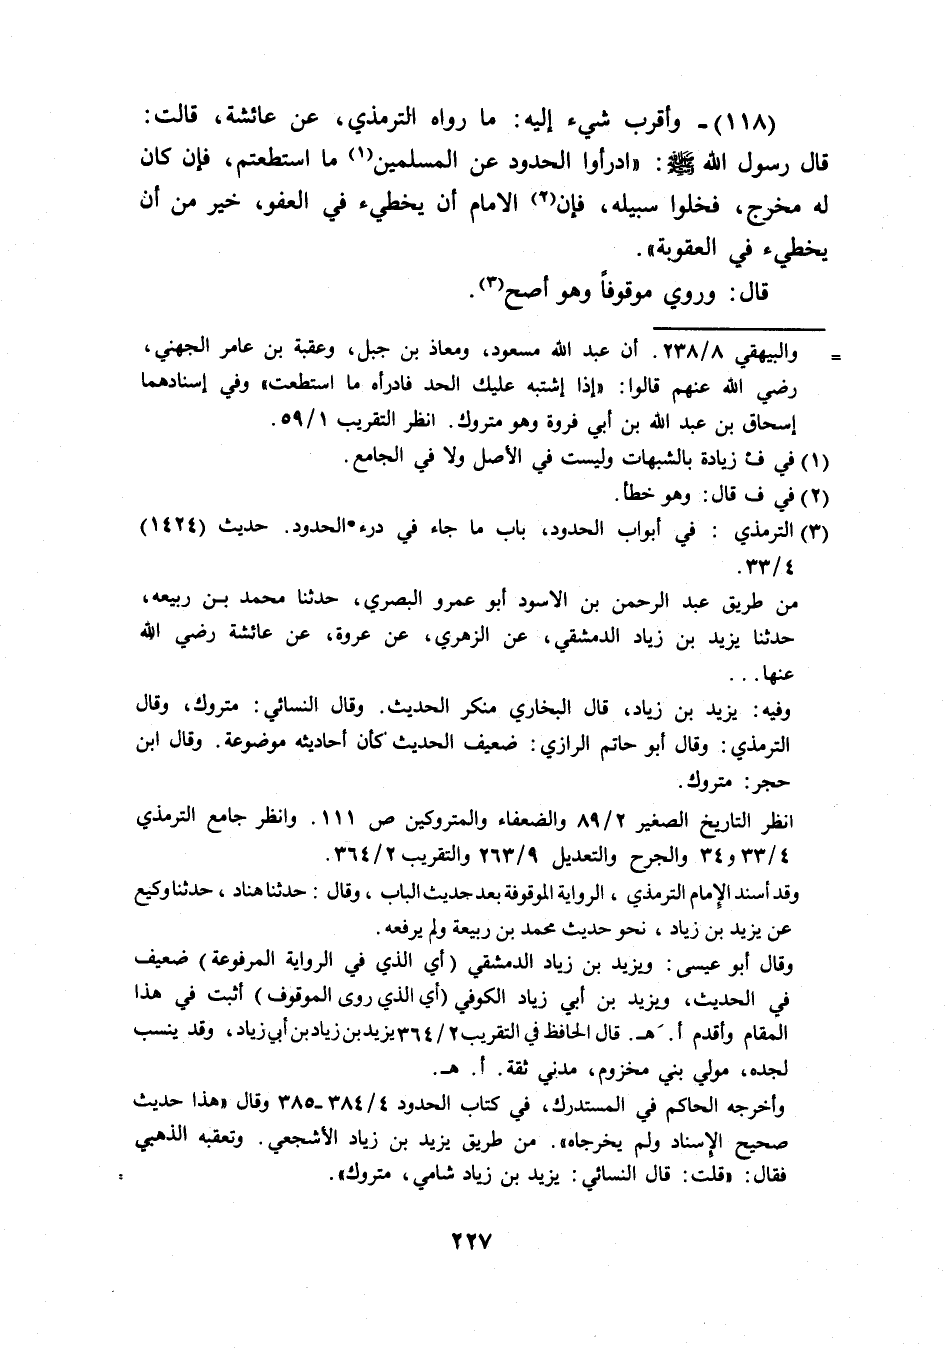 (١١٨) - وأقرب شيء إليه: ما رواه الترمذي، عن عائشة، قالت:
قال رسول الله ﷺ: «ادرأوا الحدود عن المسلمين(١) ما استطعتم، فإن كان
له مخرج، فخلوا سبيله، فإن(٢) الامام أن يخطيء في العفو، خير من أن
يخطيء في العقوبة».
قال: وروي موقوفاً وهو أصح(٣).
= والبيهقي ٢٣٨/٨. أن عبد الله مسعود، ومعاذ بن جبل، وعقبة بن عامر الجهني،
رضي الله عنهم قالوا: «إذا إشتبه عليك الحد فادرأه ما استطعت» وفي إسنادهما
إسحاق بن عبد الله بن أبي فروة وهو متروك. انظر التقريب ٥٩/١.
(١) في ف زيادة بالشبهات وليست في الأصل ولا في الجامع.
(٢) في ف قال: وهو خطأ.
(٣) الترمذي : في أبواب الحدود، باب ما جاء في درء الحدود. حديث (١٤٢٤)
٣٣/٤.
من طريق عبد الرحمن بن الاسود أبو عمرو البصري، حدثنا محمد بن ربيعه،
حدثنا يزيد بن زياد الدمشقي، عن الزهري، عن عروة، عن عائشة رضي الله
عنها...
وفيه: يزيد بن زياد، قال البخاري منكر الحديث. وقال النسائي: متروك، وقال
الترمذي: وقال أبو حاتم الرازي: ضعيف الحديث كأن أحاديثه موضوعة. وقال ابن
حجر: متروك.
انظر التاريخ الصغير ٨٩/٢ والضعفاء والمتروكين ص ١١١. وانظر جامع الترمذي
٣٣/٤ و٣٤ والجرح والتعديل ٢٦٣/٩ والتقريب ٣٦٤/٢.
وقد أسند الإمام الترمذي ، الرواية الموقوفة بعد حديث الباب ، وقال : حدثنا هناد ، حدثنا وكيع
عن يزيد بن زياد ، نحو حديث محمد بن ربيعة ولم يرفعه.
وقال أبو عيسى: ويزيد بن زياد الدمشقي (أي الذي في الرواية المرفوعة) ضعيف
في الحديث، ويزيد بن أبي زياد الكوفي (أي الذي روى الموقوف) أثبت في هذا
المقام وأقدم أ. هـ. قال الحافظ في التقريب ٣٦٤/٢ يزيد بن زياد بن أبي زياد، وقد ينسب
لجده، مولي بني مخزوم، مدني ثقة. أ. هـ.
وأخرجه الحاكم في المستدرك، في كتاب الحدود ٣٨٤/٤ -٣٨٥ وقال «هذا حديث
صحيح الإسناد ولم يخرجاه». من طريق يزيد بن زياد الأشجعي. وتعقبه الذهبي
فقال: «قلت: قال النسائي: يزيد بن زياد شامي، متروك». =
٢٢٧